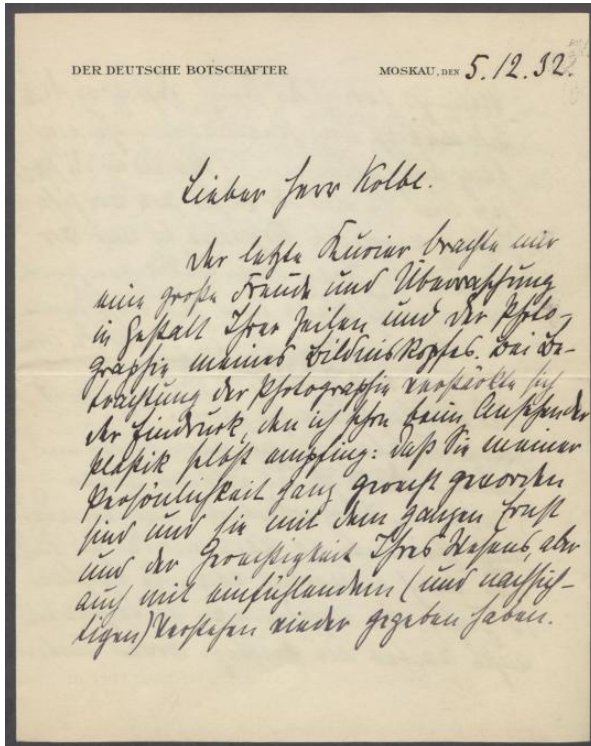 DER DEUTSCHE BOTSCHAFTER
MOSKAU, DEN 5.12.32.
Lieber Herr Kolbe.
Der letzte Kurier brachte mir
eine große Freude und Überraschung
in Gestalt Ihrer Zeilen und der Photo-
graphie meines Bildniskopfes. Bei Be-
trachtung der Photographie verstärkte sich
der Eindruck, den ich schon beim Ansehen der
Plastik selbst empfing: daß Sie meiner
Persönlichkeit ganz gerecht geworden
sind und sie mit dem ganzen Ernst
und der Gerechtigkeit Ihres Wesens, aber
auch mit einfühlendem (und nachsich-
tigen) Verstehen wieder gegeben haben.